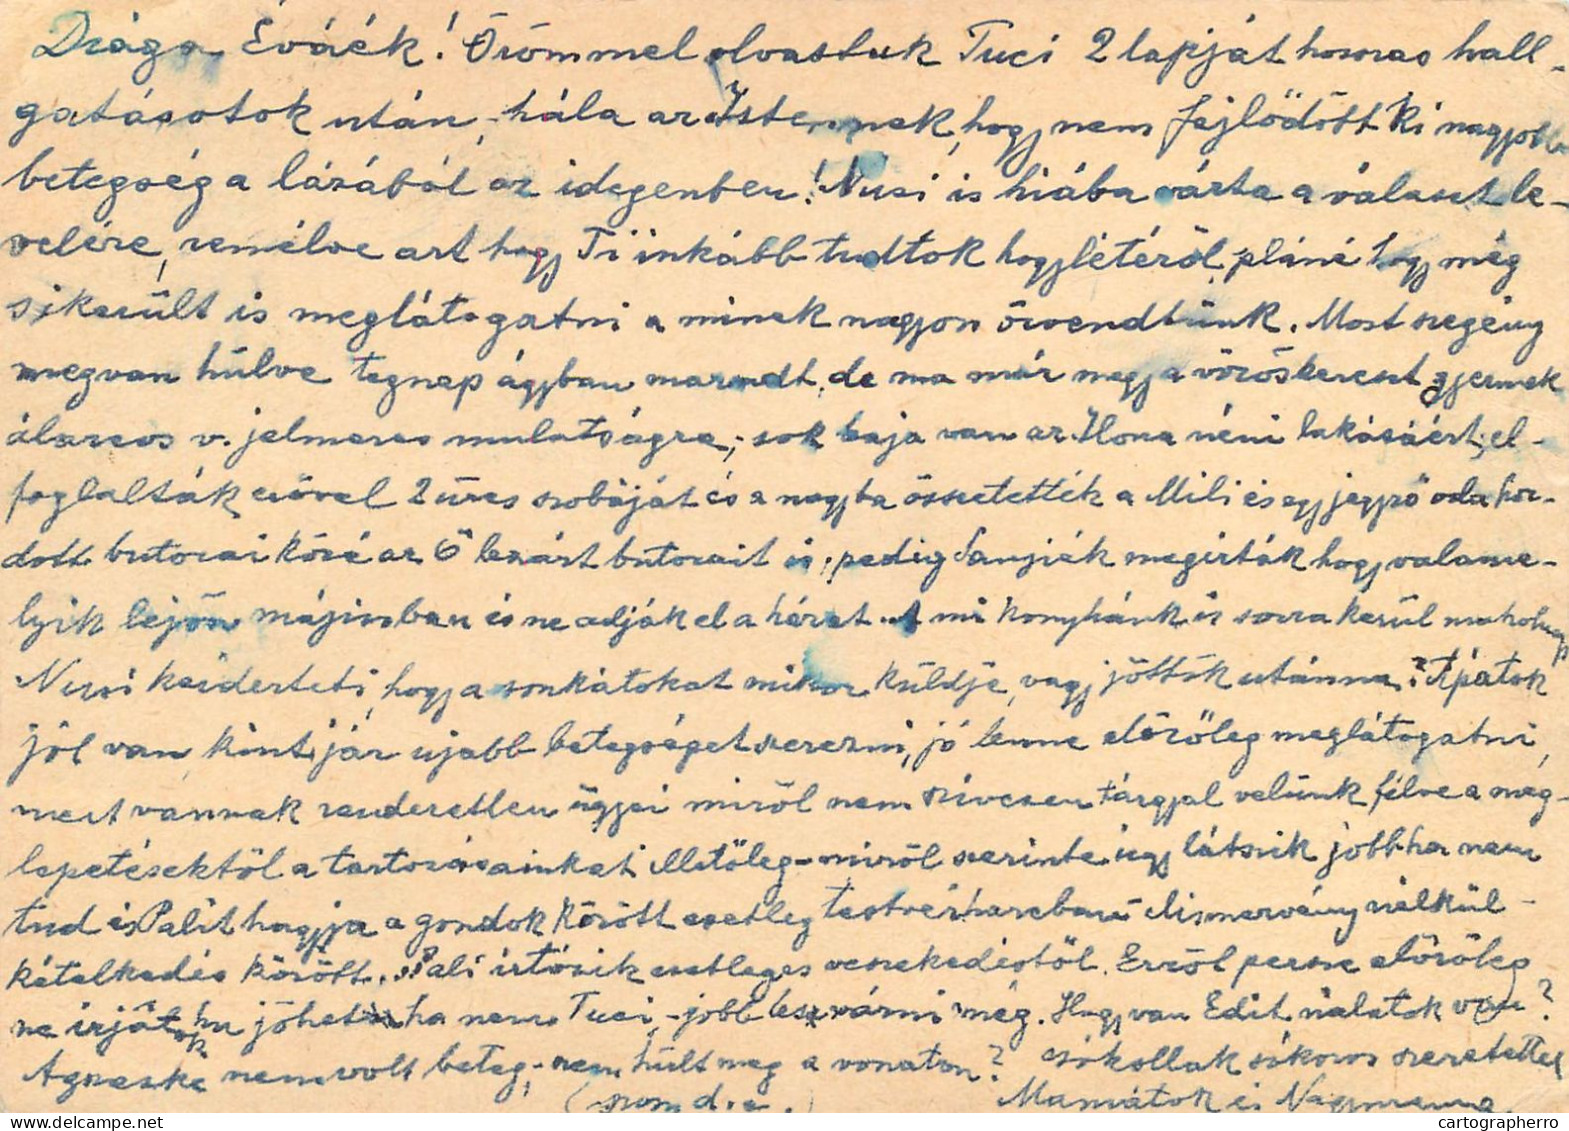 Drága Éváék! Örömmel olvastuk Tuci 2 lapját hosszas hall-
gatásotok után, hála az Istennek, hogy nem fejlődött ki nagyobb
betegség a lázából az idegenben! Nusi is hiába várta a választ le-
velére, remélve azt hogy Ti inkább tudtok hogylétéröl, pláné hogy még
sikerült is meglátogatni a minek nagyon örvendtünk. Most szegény
megvan hülve tegnap ágyban maradt, de ma már megy a vöröskereszt gyermek
álarcos v. jelmezes mulatságra, sok baja van az Ilona néni lakásáért, el-
foglalták erövel 2 üres szobáját és a nagyba összetették a Mili és egy jegyző oda hor-
dott butorai közé az Ö bezárt butorait is, pedig Sanyiék megirták hogy valame-
lyik lejön májusban és ne adják el a házat. A mi konyhánk is sorra kerül maholnap
Nusi kérdezteti, hogy a sonkátokat mikor küldje, vagy jöttök utánna? Apátok
jól van, kint jár ujabb betegséget szerezni, jó lenne elöröleg meglátogatni,
mert vannak rendezetlen ügyei miröl nem szivesen tárgyal velünk félve a meg-
lepetésektöl a tartozásainkat illetöleg - miröl szerinte ugy látszik jobb ha nem
tud és Palit hagyja a gondok között esetleg testvérharcban elismervény nélkül -
kételkedés között. Pali irtózik esetleges veszekedéstöl. Erröl persze elöröleg
ne irjátok ha jöhet ha nem Tuci, jobb lesz várni még. Hogy van Edit nálatok van?
Ágneske nem volt beteg, nem hült meg a vonaton? csókollak sikoros szeretettel
Mamátok és Nagymama
cartographerro